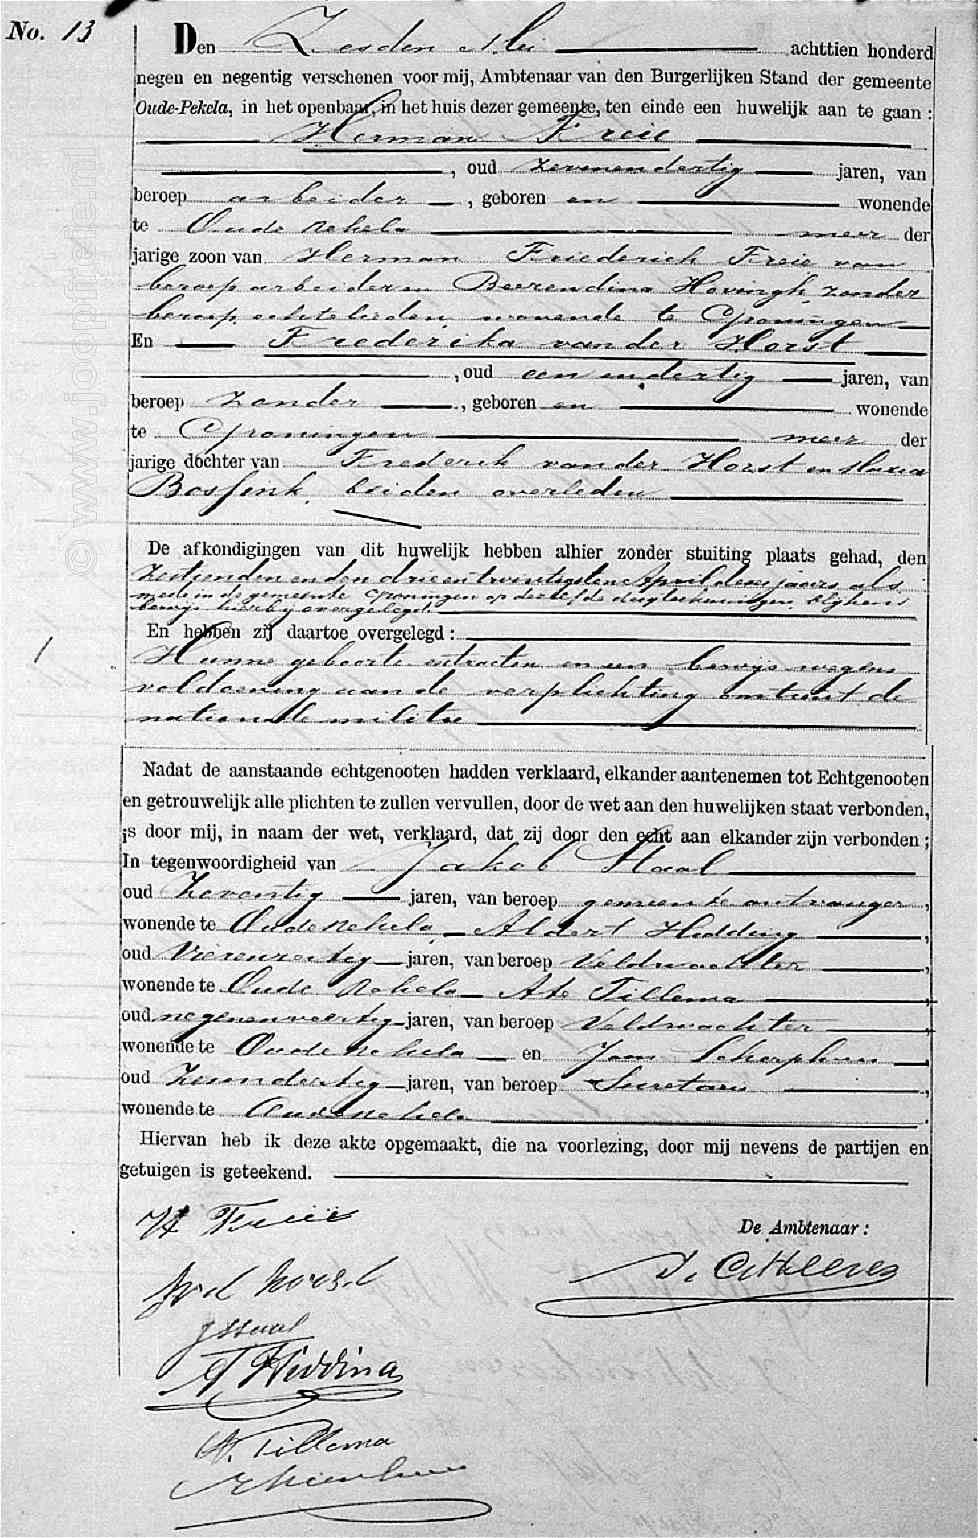 No. 13
Den Zesden Mei achttien honderd
negen en negentig verschenen voor mij, Ambtenaar van den Burgerlijken Stand der gemeente
Oude-Pekela, in het openbaar, in het huis dezer gemeente, ten einde een huwelijk aan te gaan:
Herman Freie
, oud zevenendertig jaren, van
beroep arbeider, geboren en wonende
te Oude Pekela meer der
jarige zoon van Herman Friederich Freie van
beroep arbeider en Beerendina Hovingh, zonder
beroep, echtelieden, wonende te Groningen
En Frederika van der Horst
, oud een en dertig jaren, van
beroep zonder, geboren en wonende
te Groningen meer der
jarige dochter van Frederik van der Horst en Maria
Bossink, beiden overleden
De afkondigingen van dit huwelijk hebben alhier zonder stuiting plaats gehad, den
zestienden en den drie en twintigsten April dezes jaars, als
mede in de gemeente Groningen op dezelfde dagteekeningen, blijkens
bewijs hierbij overgelegd
En hebben zij daartoe overgelegd:
Hunne geboorte extracten en een bewijs wegens
voldoening aan de verplichting omtrent de
nationale militie
Nadat de aanstaande echtgenooten hadden verklaard, elkander aantenemen tot Echtgenooten
en getrouwelijk alle plichten te zullen vervullen, door de wet aan den huwelijken staat verbonden,
is door mij, in naam der wet, verklaard, dat zij door den echt aan elkander zijn verbonden;
In tegenwoordigheid van Jakob
oud Zeventig jaren, van beroep gemeente ontvanger,
wonende te Oude Pekela, Aldert Hidding,
oud Vierenzestig jaren, van beroep Veldwachter,
wonende te Oude Pekela Ate Tillema
oud negenenveertig jaren, van beroep Veldwachter
wonende te Oude Pekela en Jan,
oud jaren, van beroep Secretarie,
wonende te Oude Pekela.
Hiervan heb ik deze akte opgemaakt, die na voorlezing, door mij nevens de partijen en
getuigen is geteekend.
H Freie
De Ambtenaar:
F v d Horst
A Hiddina
A. Tillema
© www.jolopfile.nl